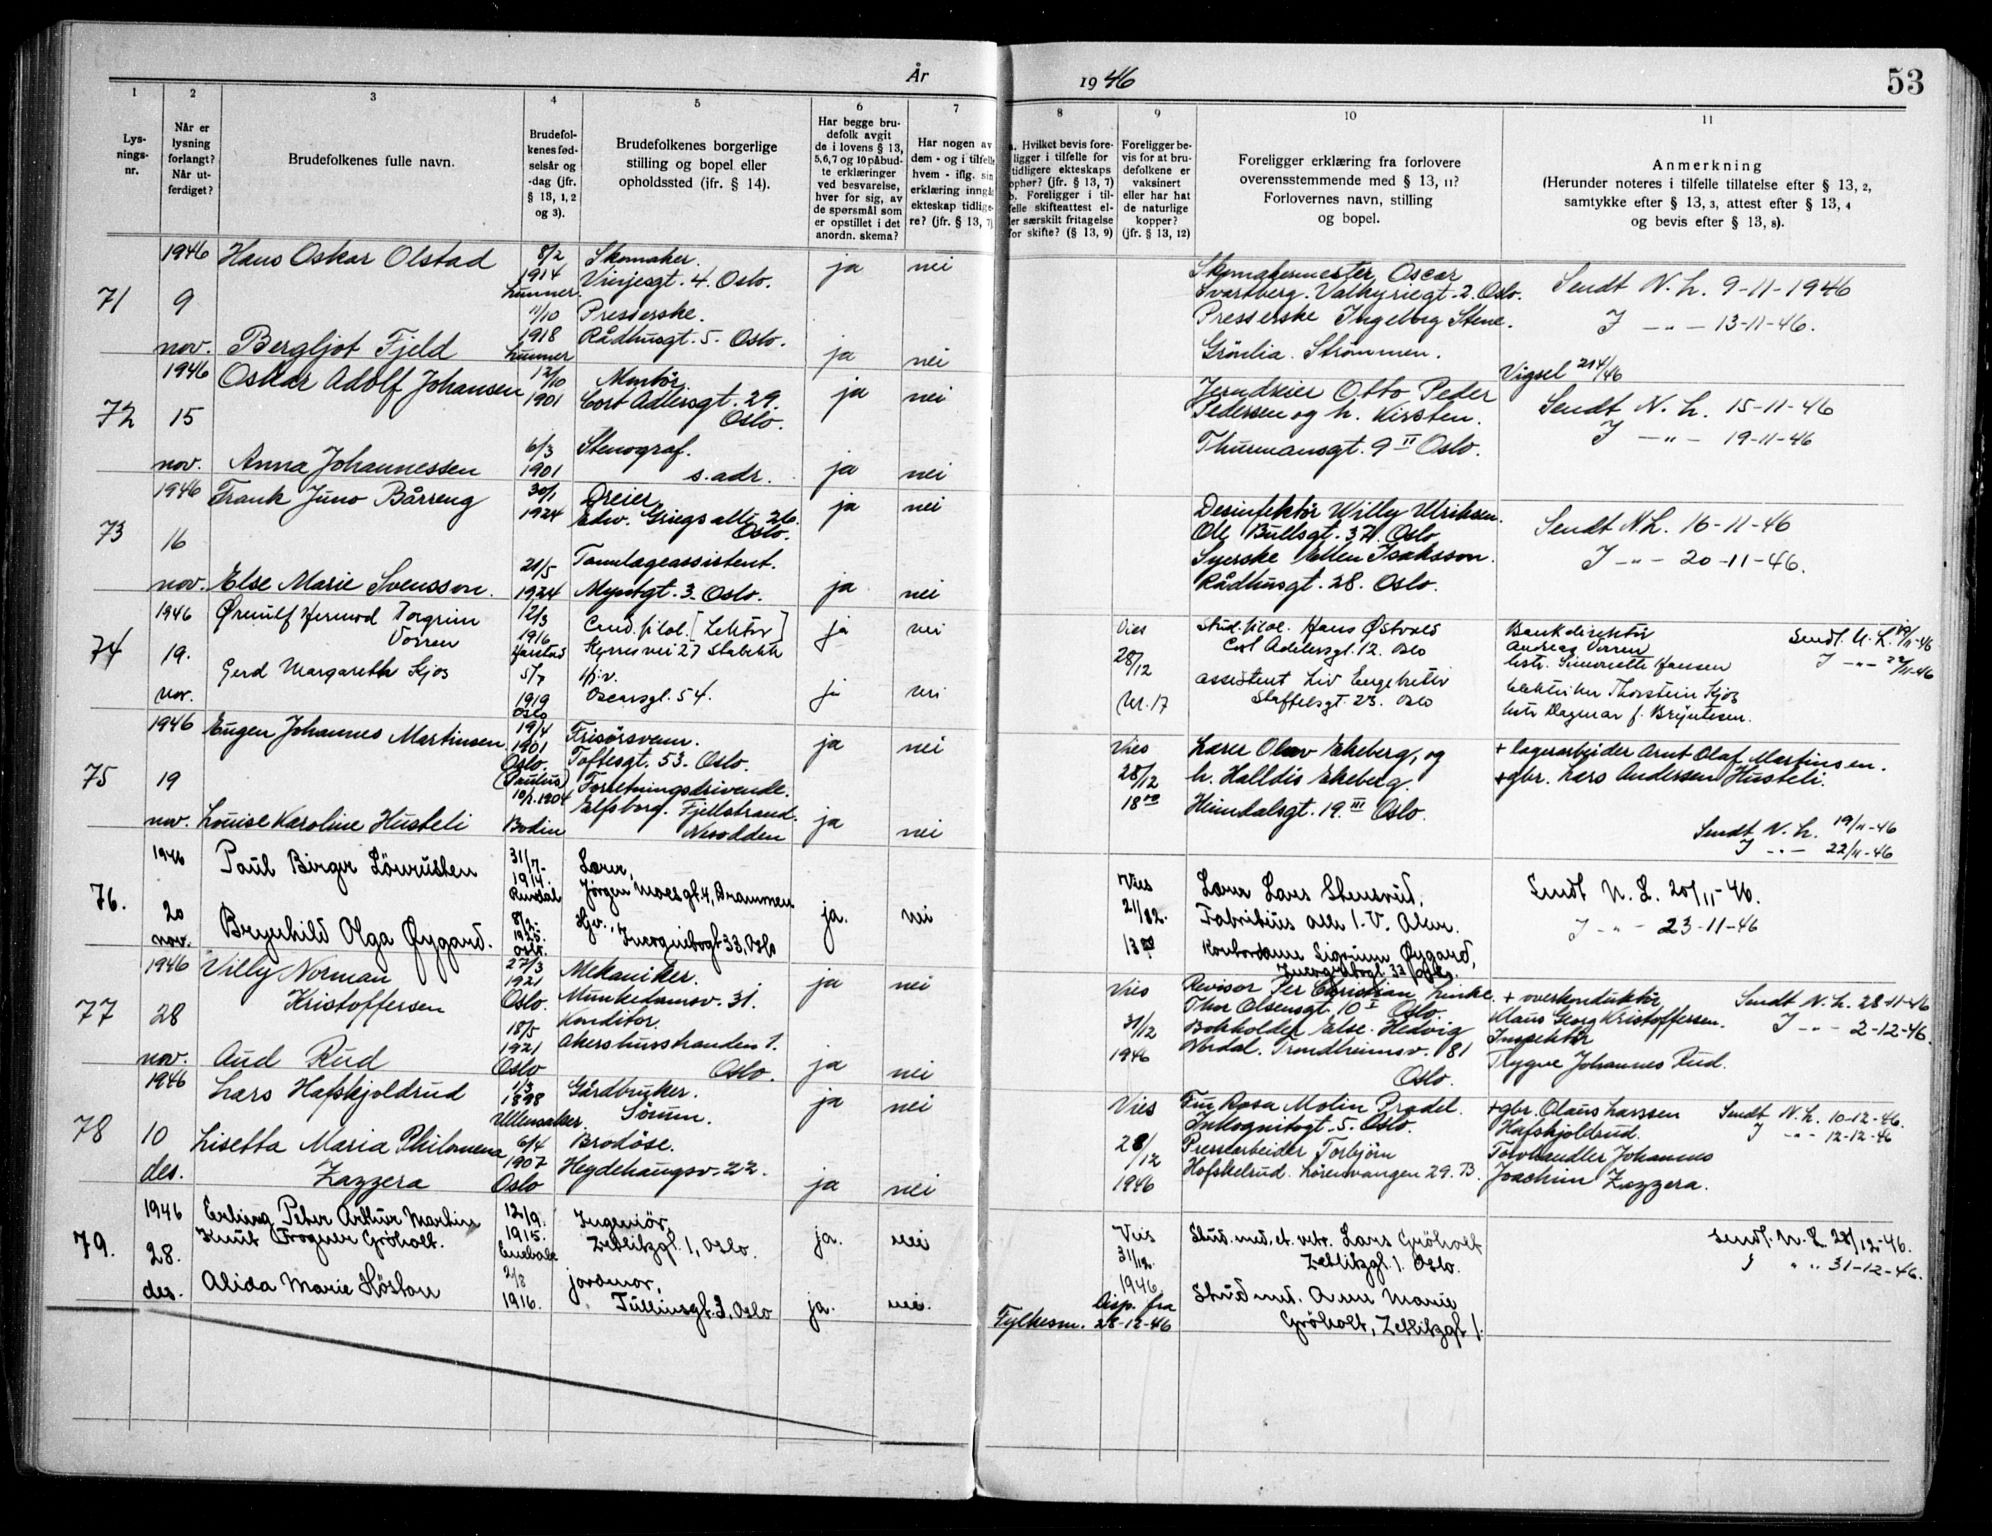 År 1946
53
1
2
3
4
5
6
7
8
9
10
11
Lys-
nings-
nr.
Når er
lysning
forlangt?
Når ut-
ferdiget?
Brudefolkenes fulle navn.
Brudefol-
kenes fød-
selsår og
-dag (jfr.
§ 13, 1, 2
og 3).
Brudefolkenes borgerlige
stilling og bopel eller
opholdssted (jfr. § 14).
Har begge bru-
defolk avgit
de i lovens § 13,
5, 6, 7 og 10 påbud-
te erklæringer
ved besvarelse,
hver for sig, av
de spørsmål som
er opstillet i det
anordn. skema?
Har nogen av
dem - og i tilfelle
hvem - iflg. sin
erklæring inngåt
ekteskap tidlige-
re? (jfr. § 13, 7)
a. Hvilket bevis fore-
ligger i tilfelle for
tidligere ekteskaps
ophør? (jfr. § 13, 7)
b. Foreligger i til-
felle skifteattest el-
ler særskilt fritagelse
for skifte? (§ 13, 9)
Foreligger be-
vis for at bru-
defolkene er
vaksinert
eller har hat
de naturlige
kopper?
(jfr. § 13, 12)
Foreligger erklæring fra forlovere
overensstemmende med § 13, 11?
Forlovernes navn, stilling
og bopel.
Anmerkning
(Herunder noteres i tilfelle tillatelse efter § 13, 2,
samtykke efter § 13, 3, attest efter § 13, 4
og bevis efter § 13, 8).
71
1946
9
nov.
Hans Oskar Olstad
8/2
1914
Lunner.
Skomaker.
Vinjesgt. 4. Oslo.
ja
nei
Bergljot Fjeld
11/10
1918
Lunner
Presserske.
Rådhusgt. 5. Oslo.
ja
nei
Skomakermester Oscar
Svartberg. Valkyriegt. 2. Oslo.
Presserske Ingeborg Stene.
Grönlia. Strömmen.
Sendt N. L. 9-11-1946
J — " — 13-11-46.
72
1946
15
nov.
Oskar Adolf Johansen
12/10
1901
Montör.
Cort Adlersgt. 29.
Oslo.
ja
nei
Anna Johannessen
6/3
1901
Stenograf.
s. adr.
ja
nei
Otto Peder
Pedersen og h. Kirsten.
Thurmansgt. 9 II Oslo.
Vigsel 214/46
Sendt N. L. 15-11-46
J — " — 19-11-46
73
1946
16
nov.
Frank Juno Bårreng
30/1
1924
Dreier,
Edv. Griegs alle 26.
Oslo.
ja
nei
Else Marie Svensson.
21/5
1924
Tannlegeassistent.
Myntgt. 3. Oslo.
ja
nei
Desinfektör Willy Ulriksen.
Ole Bullsgt. 37. Oslo
Syerske Ellen Isaksson.
Rådhusgt. 28. Oslo.
Sendt N.L. 16-11-46
J — " — 20-11-46.
74
1946
19.
nov.
Ørnulf Hermod Torgrim
Vorren
12/3
1916
Harstad
Cand. filol. [Lektor]
27 Stabekk
ja
nei
Gerd Margareth Kjos
5/7
1919
Oslo
Hj.v.
Oscarsgt. 54.
ja
nei
Vies
28/12
kl. 17
Stud. filol. Hans Østvold
Cort Adelersgt. 12. Oslo
assistent Liv Engebretsen
Staffelsgt. 23. Oslo
Bankdirektör
Andreas Vorren
hstr. Simonette Hansen
Elektriker Thorstein Kjos
hstr Dagmar f. Bryntesen.
Sendt. N. L. 19/11-46
J — " — 22/11-46
75
1946
19
nov.
Eugen Johannes Martinsen
19/4
1901
Oslo.
(Paulus)
Frisörsvenn.
Toftesgt. 53. Oslo.
ja
nei
Louise Karoline Husteli
10/2. 1904
Bodin
Forretningsdrivende.
Elfsborg. Fjellstrand.
Nesodden
ja
nei
Vies
28/12
18 00
Lærer Olav Ekeberg, og
h. Halldis Ekeberg.
Heimdalsgt. 19. III Oslo.
+ lagerarbeider Arnt Olaf Martinsen.
+ gbr. Lars Andersen Husteli.
Sendt N. L. 19/11-46
J — " — 22/11-46
76.
1946
20
nov.
Paul Birger Lönrusten
31/7-
1914.
Rindal
Lærer,
Jörgen Moesgt. 4, Drammen
ja.
nei
Brynhild Olga Øygard.
8/2-
1925.
Oslo.
Hjv.,
Incognitogt 33, Oslo
Vies
21/12.
13 00
Lærer Lars Stensrud,
Fabritius alle 1. V. Aker.
Kontordame Sigrunn Øygard,
Incognitogt. 33, Oslo.
Sendt N. L. 20/11-46.
J — " — 23-11-46
77
1946
28
nov.
Villy Norman
Kristoffersen
27/3
1921
Oslo.
Mekaniker.
Munkedamsv. 31.
ja
nei
Aud Rud
18/5
1921
Oslo
Konditor.
Akershusstranden 1.
Oslo.
ja
nei
Vies
31/12
1946
Revisor Per Christian Linke.
Thor Olsensgt. 10 I Oslo.
Bokholder Else Hedvig
Verdal. Trondheimsv. 181
Oslo.
+ overkonduktör
Klaus Georg Kristoffersen.
Inspektör
Trygve Johannes Rud.
Sendt N. L. 28-11-46
J — " — 2-12-46.
78
1946
10
des.
Lars Hafskjoldrud
1/3
1898
Ullensaker
Gårdbruker.
Sörum.
ja
nei
Lisetta Maria Philomena
Zazzera
6/4
1907
Oslo
Brodöse.
Hegdehaugsv. 22.
ja
nei
Vies
28/12
1946
Fru Rosa Molin Pradel.
Inkognitogt. 5. Oslo.
Pressearbeider Torbjörn
Hofskelrud. Lörenvangen 29. B.
+ gbr. Olaus Larssen
Hafskjoldrud.
Torvhandler Johannes
Joachim Zazzera.
Sendt N. L. 10-12-46.
J " " 12-12-46
79.
1946
28.
des.
Erling Peter Arthur Martin
Knut Frogner Gröholt.
12/9.
1915.
Enebakk
Ingeniör,
Zetlitzgt. 1, Oslo.
ja.
nei
Alida Marie Höston
2/8
1916.
jordmor,
Tullinsgt. 3, Oslo
ja.
nei.
Fylkesm.
Vies
31/12.
1946.
Disp. fra
28-12-46
Stud. med. et. vetr. Lars Gröholt
Zetlitzgt. 1. Oslo.
Stud med. Anne Marie
Gröholt, Zetlitzgt 1.
Sendt. N. L. 28/12-46.
J " " 31-12-46.